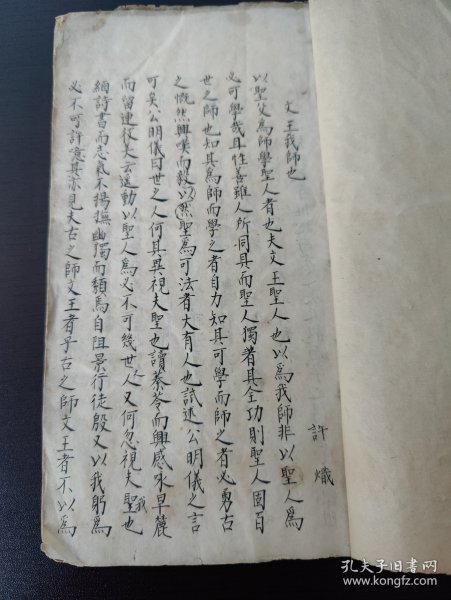 許熾
文王我師也
以聖父為師學聖人者也夫文王聖人也以為我師非以聖人為
必可學哉且性善雖人所同具而聖人獨著其全功則聖人固百
世之師也知其為師而學之者自力知其可學而師之者必勇古
之慨然興嘆而毅以然聖為可法者大有人也試述公明儀之言
可矣公明儀曰世之人何其異視夫聖也讀蓁苓而興感咏旱麓
而留連彼夫云遙動以聖人為必不可幾世人又何忽視夫聖也我
緬詩書而志氣不揚撫幽獨而頹焉自阻景行徒殷又以我躬為
必不可許噫其亦見夫古之師文王者乎古之師文王者不以為
孔夫子旧书网
www.kongfz.com